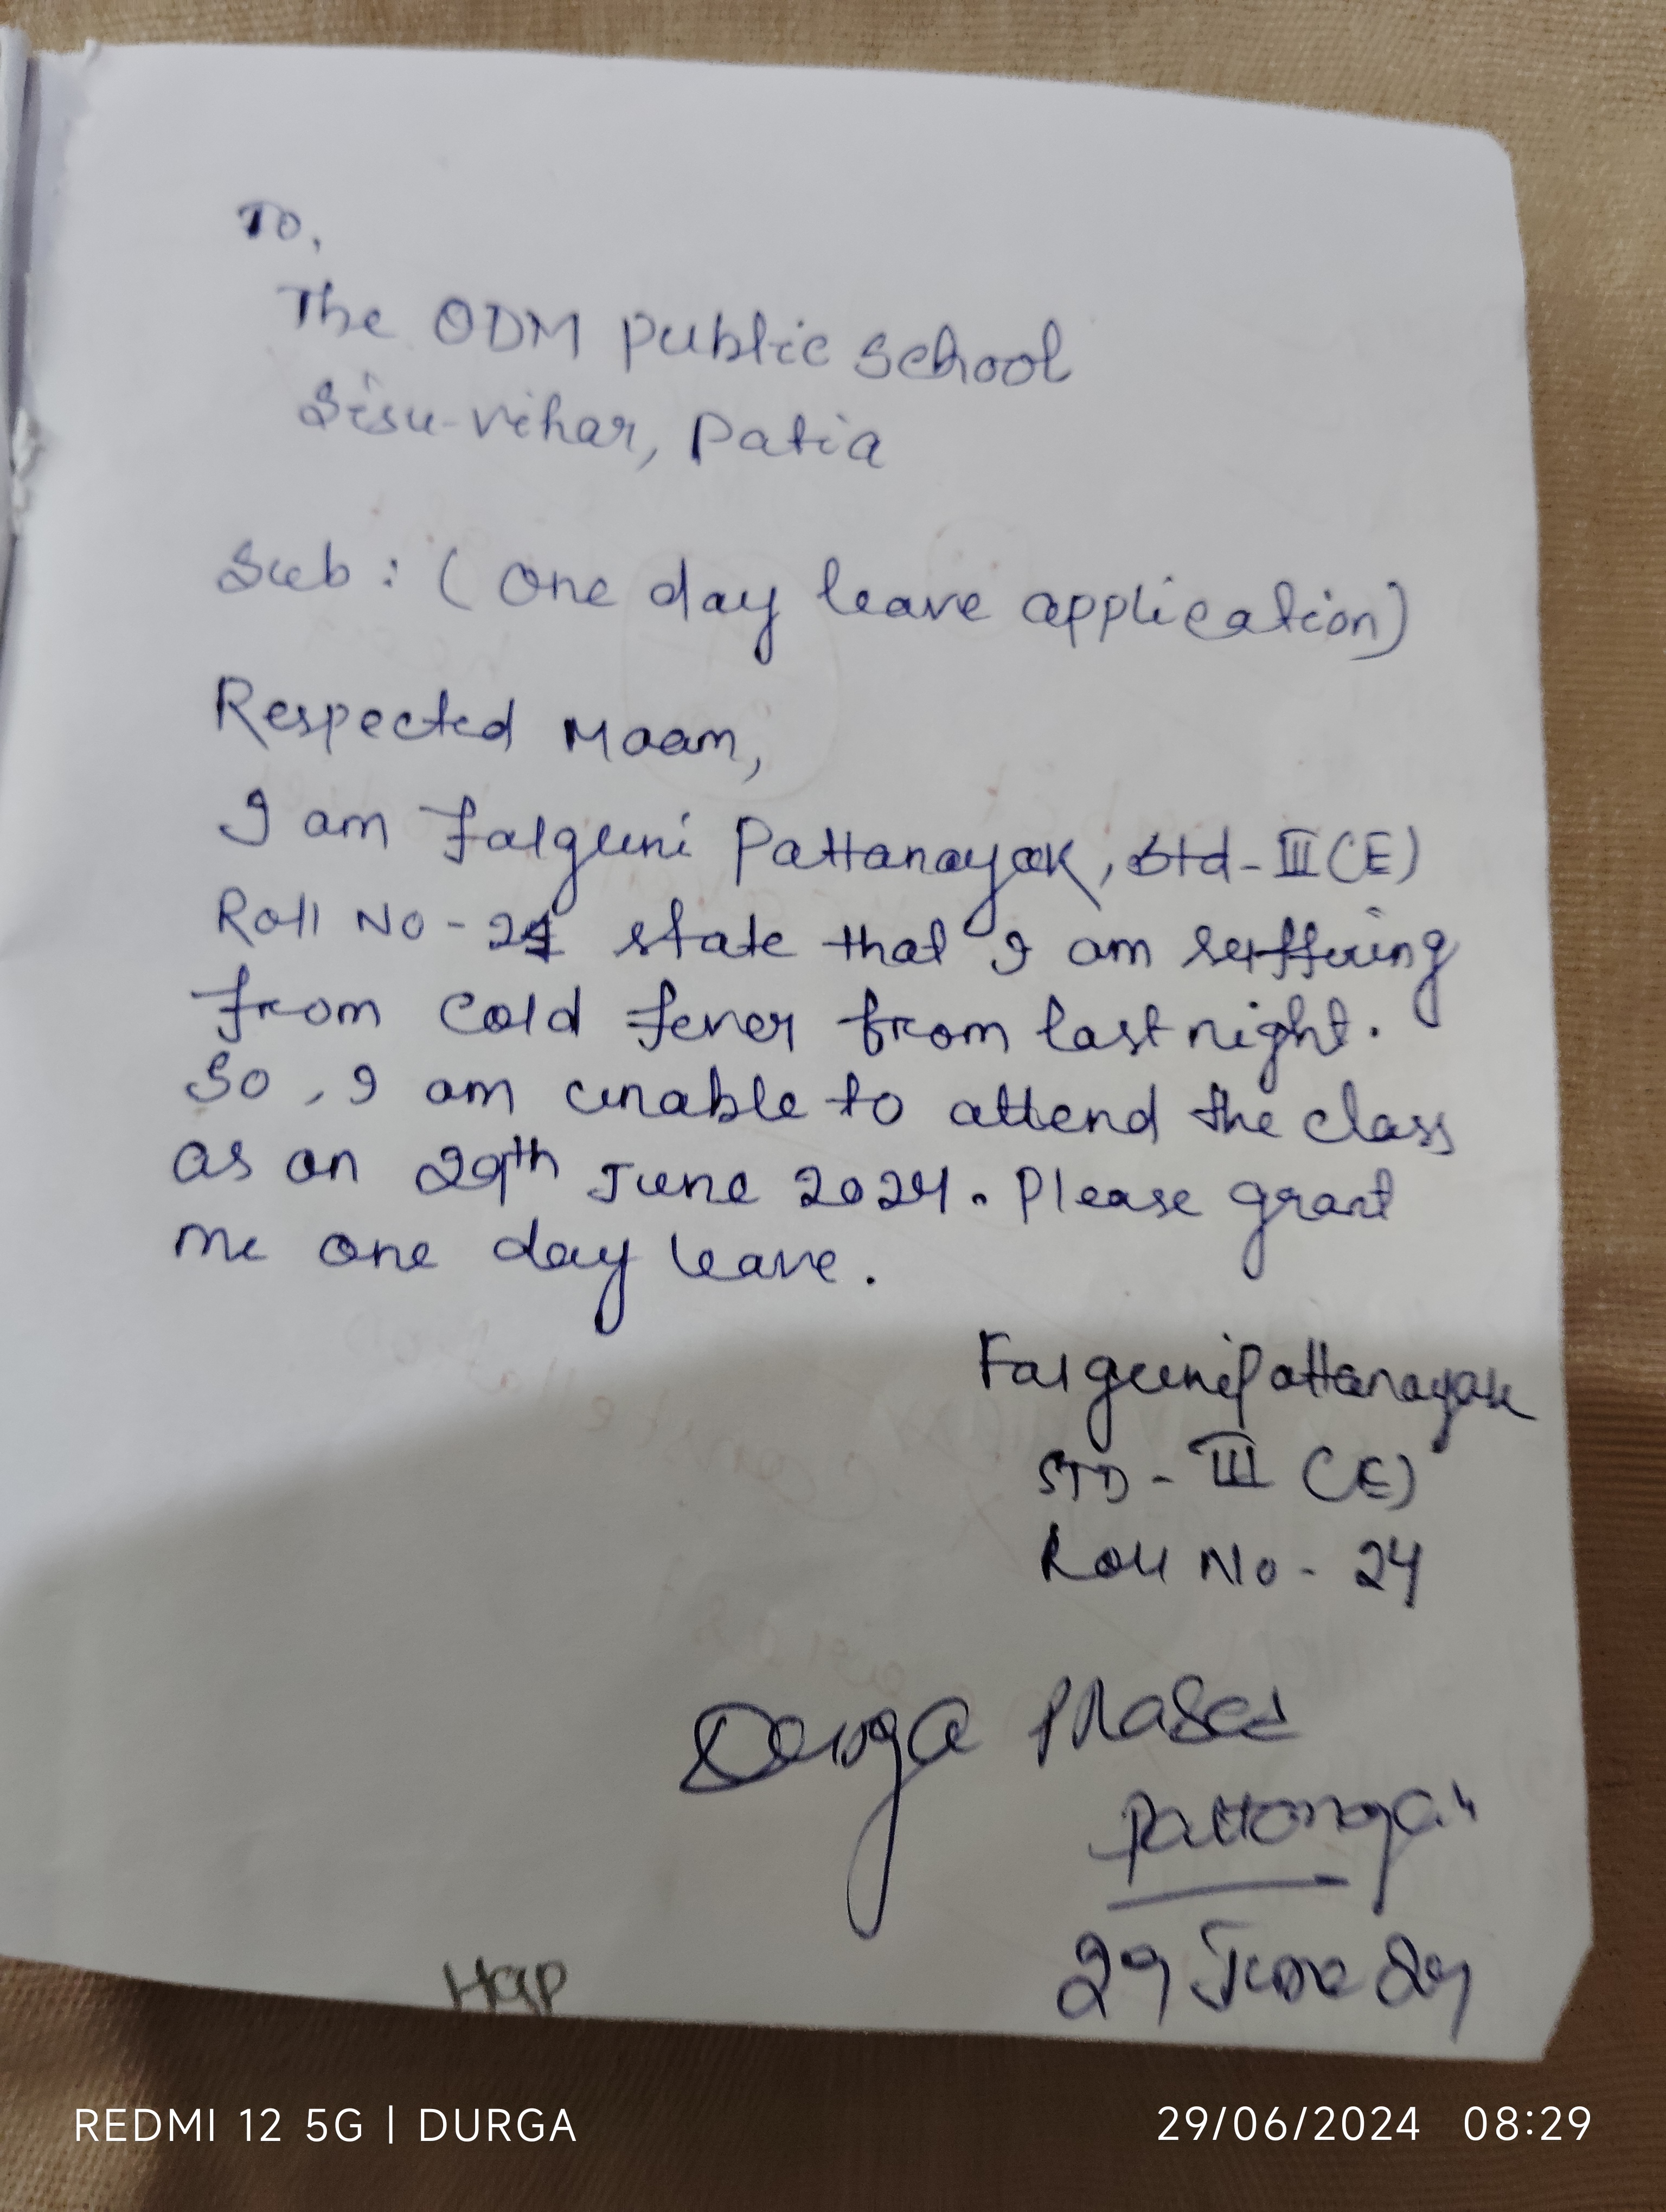 To,
The ODM Public School
Sisu-vihar, Patia
Sub : ( One day leave application)
Respected Maam,
I am Falguni Pattanayak, Std - III (E)
Roll No - 24 state that I am suffering
from cold fever from last night.
So, I am unable to attend the class
as on 29th June 2024. Please grant
me one day leave.
Falguni Pattanayak
STD - III (E)
Roll No - 24
Durga Prasad
29 June 24
REDMI 12 5G | DURGA
29/06/2024 08:29